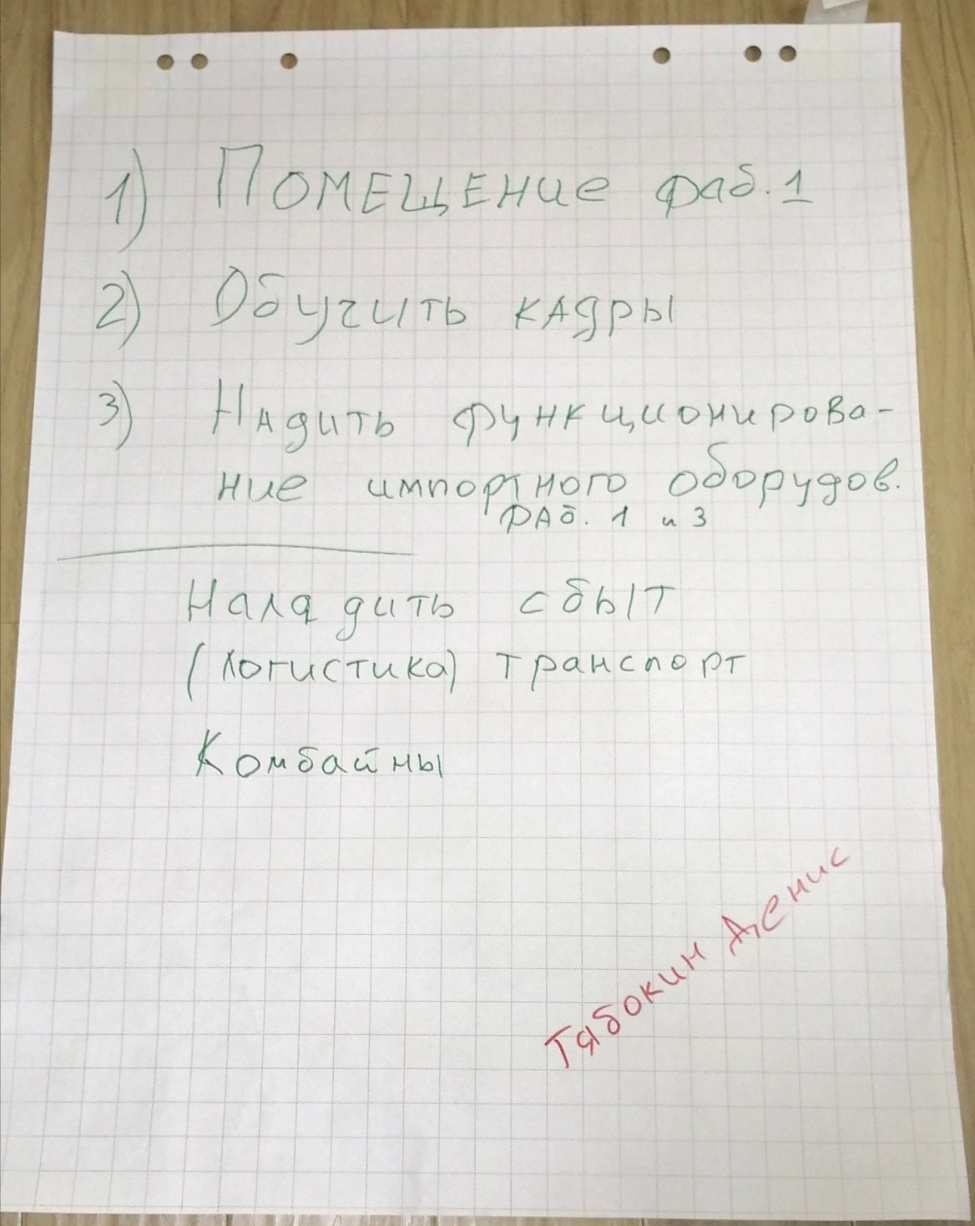 1) ПОМЕЩЕНие фаб. 1
2) Обучить кадры
3) Надить функционирова-
ние импортного оборудов.
фаб. 1 и 3
Наладить сбыт
(логистика) транспорт
Комбайны
Тябокин Денис